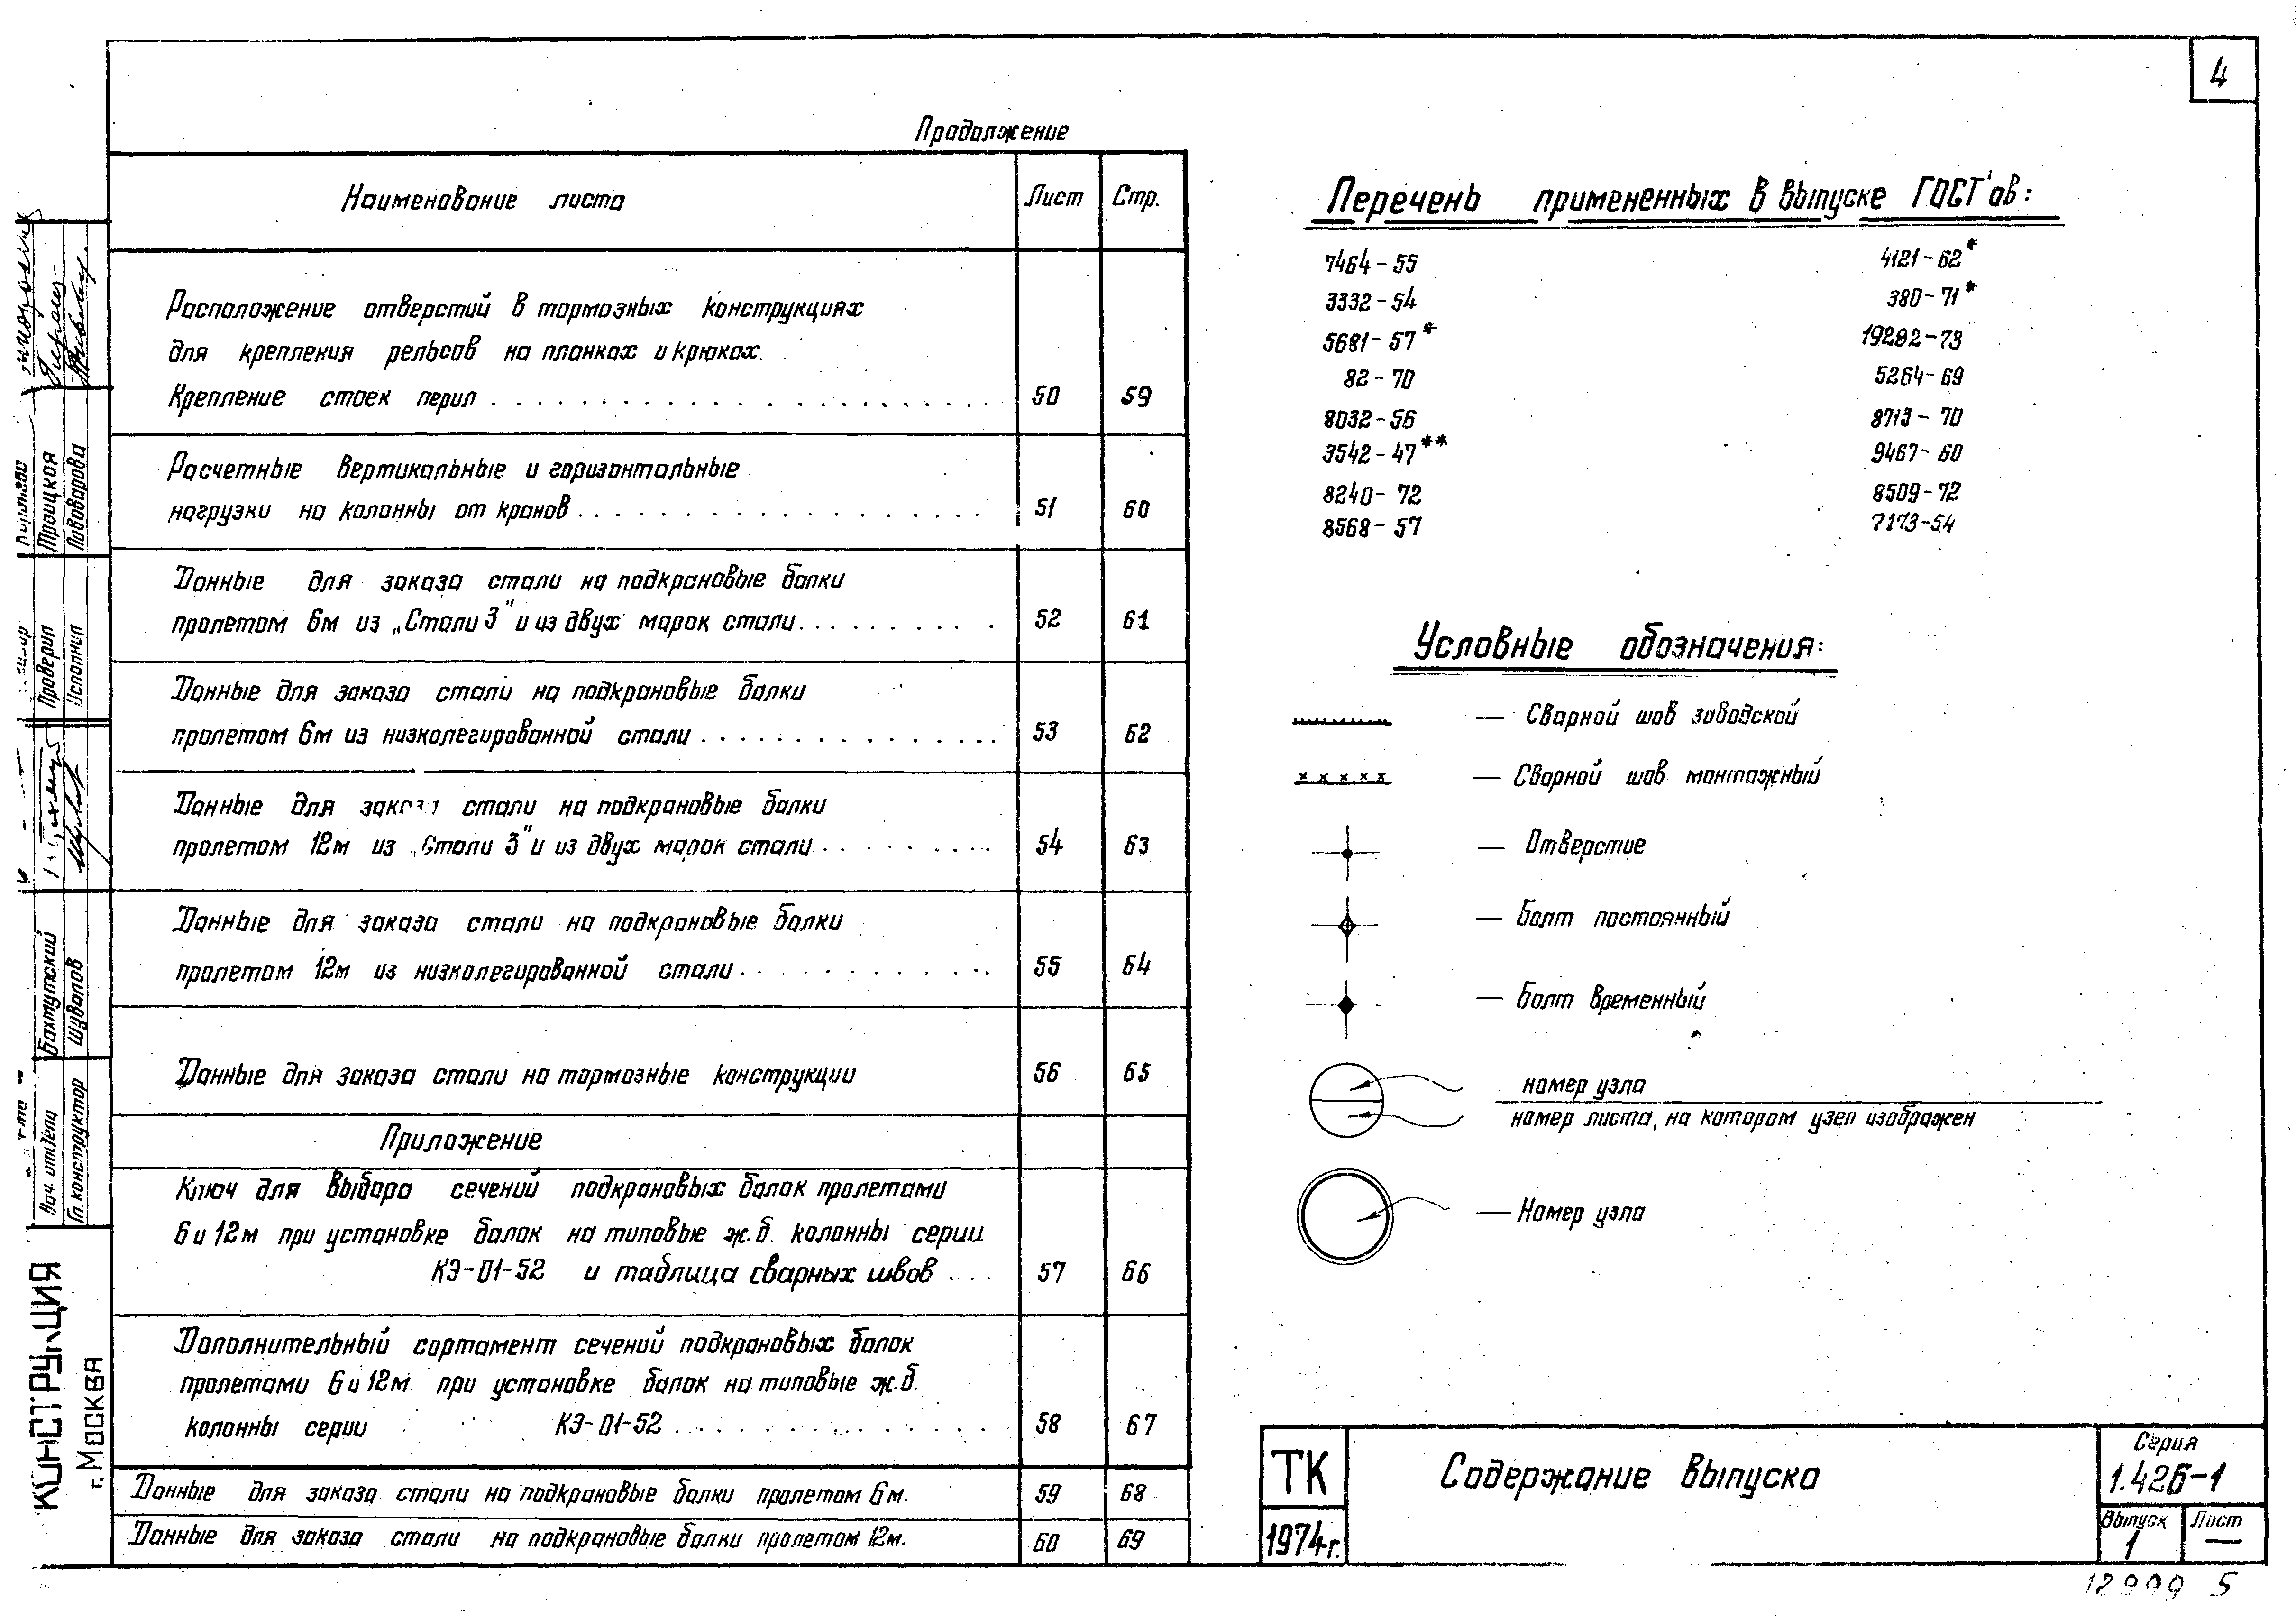 4
Продолжение
Наименование листа Лист Стр.
Расположение отверстий в тормозных конструкциях
для крепления рельсов на планках и крюках.
Крепление стоек перил . . . . . . . . . . . . . . . . . . . . . . 50 59
Расчетные вертикальные и горизонтальные
нагрузки на колонны от кранов . . . . . . . . . . . . . . . . . . 51 60
Данные для заказа стали на подкрановые балки
пролетом 6м из „Стали 3" и из двух марок стали . . . . . . . . . . 52 61
Данные для заказа стали на подкрановые балки
пролетом 6м из низколегированной стали . . . . . . . . . . . . . . 53 62
Данные для заказа стали на подкрановые балки
пролетом 12м из „Стали 3" и из двух марок стали . . . . . . . . . 54 63
Данные для заказа стали на подкрановые балки
пролетом 12м из низколегированной стали . . . . . . . . . . . 55 64
Данные для заказа стали на тормозные конструкции 56 65
Приложение
Ключ для выбора сечений подкрановых балок пролетами
6 и 12м при установке балок на типовые ж.б. колонны серии
КЭ-01-52 и таблица сварных швов . . . 57 66
Дополнительный сортамент сечений подкрановых балок
пролетами 6 и 12м при установке балок на типовые ж.б.
колонны серии КЭ-01-52 . . . . . . . . . . . . . 58 67
Данные для заказа стали на подкрановые балки пролетом 6м. 59 68
Данные для заказа стали на подкрановые балки пролетом 12м. 60 69
Перечень примененных в выпуске ГОСТ'ов:
7464-55 4121-62*
3332-54 380-71*
5681-57* 19282-73
82-70 5264-69
8032-56 8713-70
3542-47** 9467-60
8240-72 8509-72
8568-57 7173-54
Условные обозначения:
— Сварной шов заводской
— Сварной шов монтажный
— Отверстие
— Болт постоянный
— Болт временный
номер узла
номер листа, на котором узел изображен
— Номер узла
ТК
1974г.
Содержание выпуска
Серия
1.426-1
Выпуск Лист
1 —
12999 5
Троицкая
Пивоварова
Проверил
Исполнил
Бахмутский
Шувалов
Нач. отдела
Гл. конструктор
КОНСТРУКЦИЯ
г. Москва